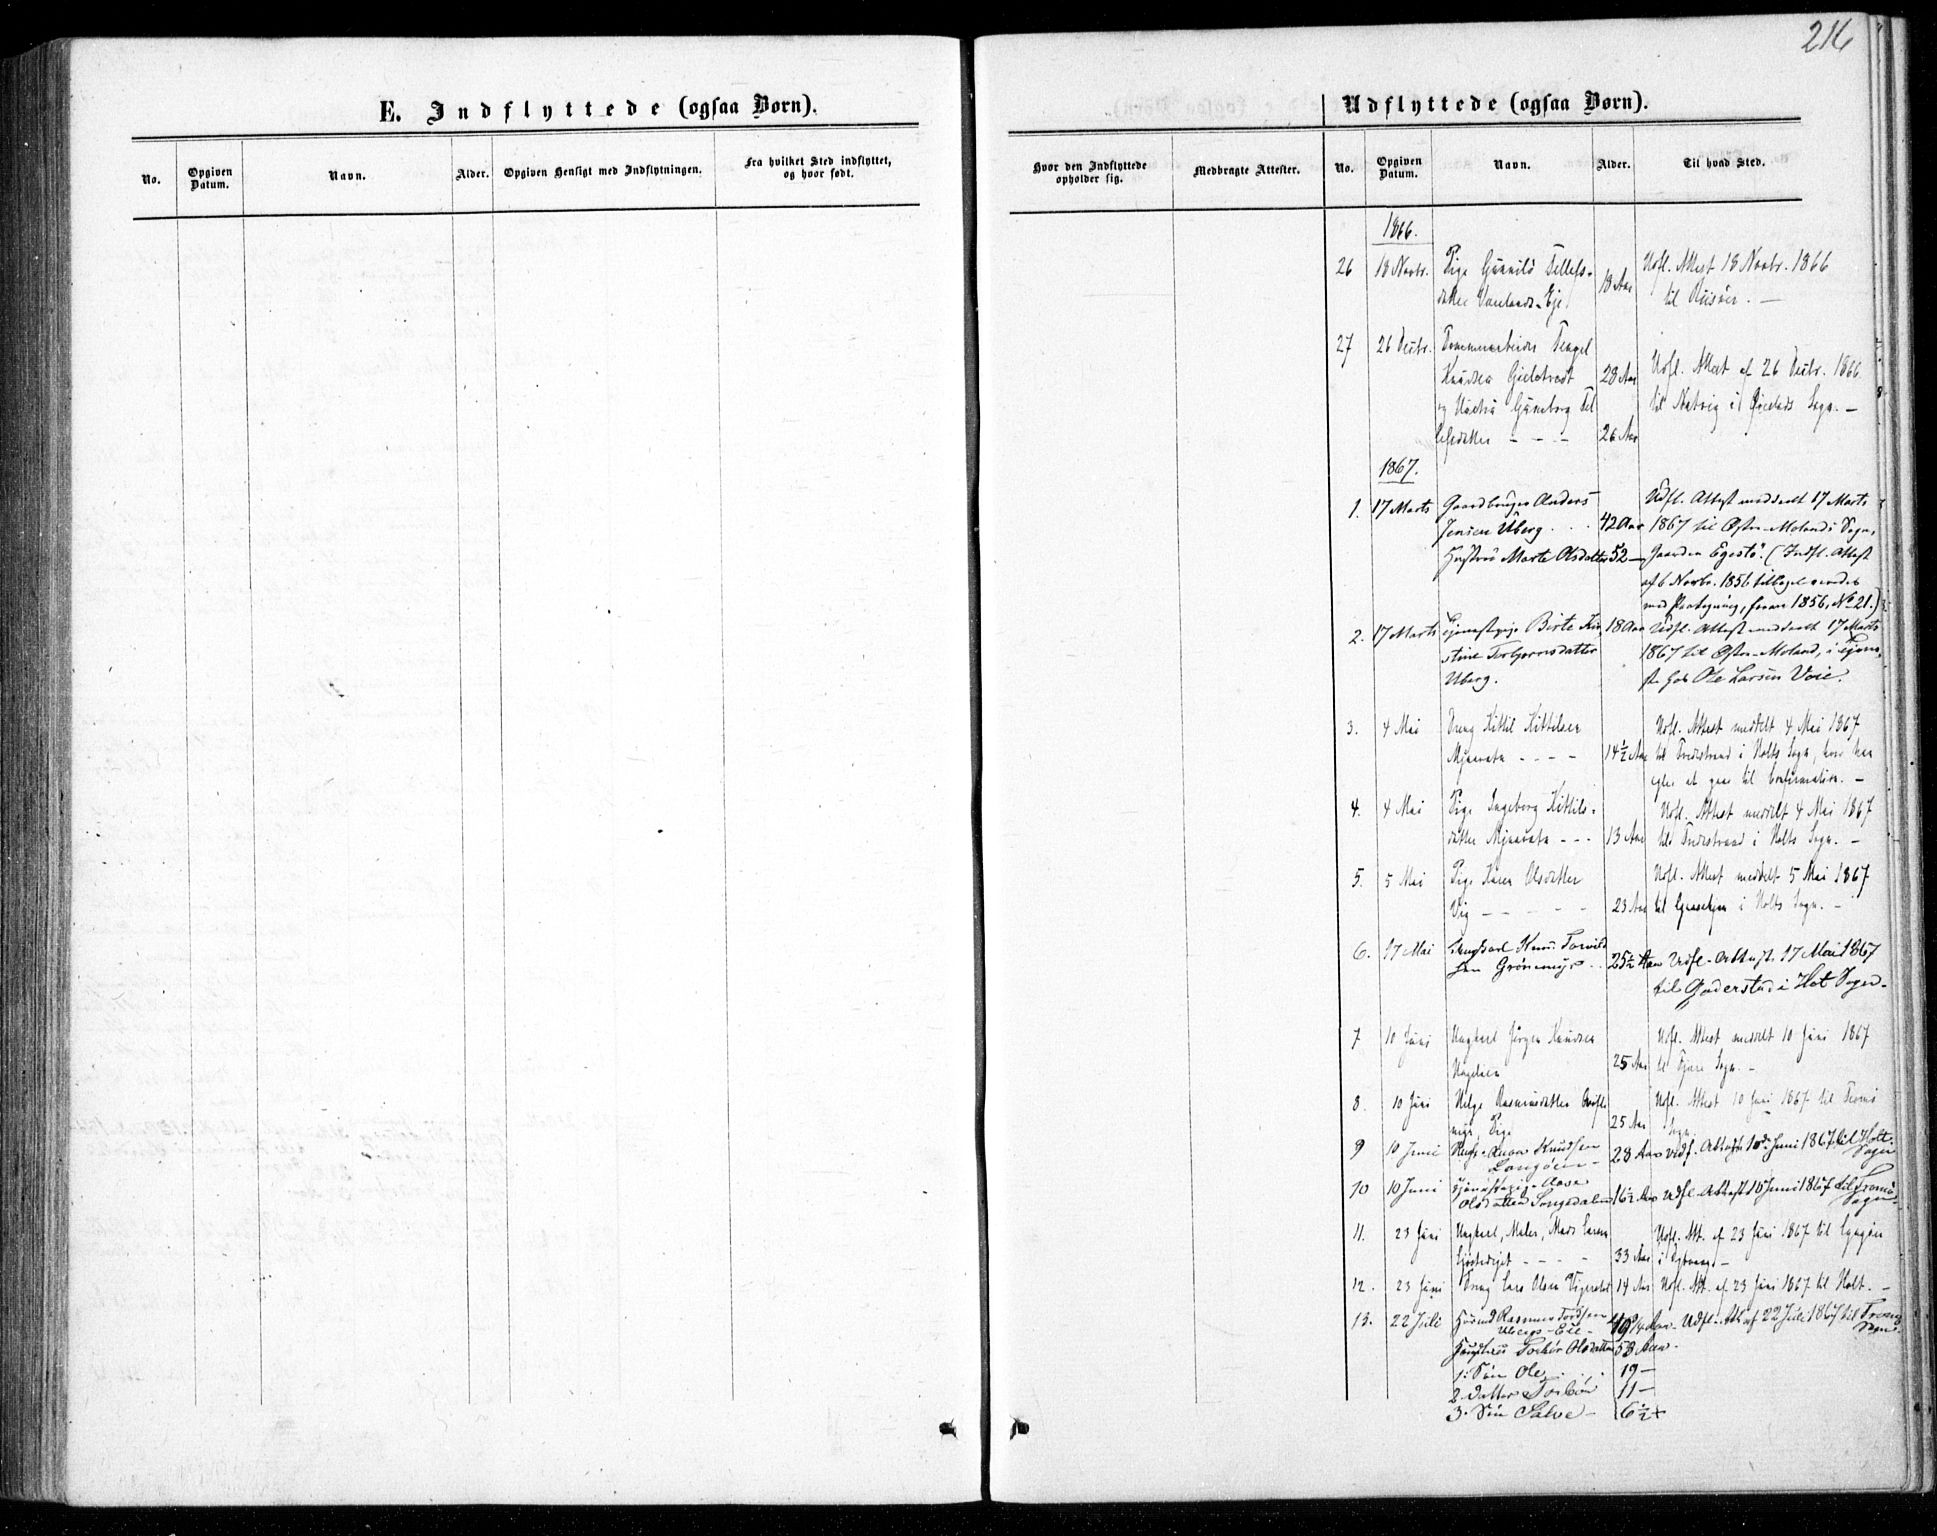 216
E. Indflyttede (ogsaa Børn).
No.
Opgiven Datum.
Navn.
Alder.
Opgiven Hensigt med Indflytningen.
Fra hvilket Sted indflyttet, og hvor født.
Udflyttede (ogsaa Børn).
Hvor den Indflyttede opholder sig.
Medbragte Attester.
No.
Opgiven Datum.
Navn.
Alder.
Til hvad Sted.
1866.
26 18 Novbr. Pige Gunnild Tellefs- 18 Aar Udfl. Attest 18 Novbr. 1866
datter Eje til Riisøer. —
27 26 Decbr. Tengel
Knudsen 28 Aar Udfl. Attest af 26 Decbr. 1866
og Hustru Gunborg Tel til Natvig i Øiestads Sogn. —
lefsdatter - - - 26 Aar
1867.
1. 17 Marts Gaardbruger Anders Udfl. Attest meddeelt 17 Marts
Jensen Uberg. . . 42 Aar 1867 til Østre-Molands Sogn,
Hustru Marte Olsdatter 52 — Gaarden Egestø. (Indfl. Attest
af 6 Novbr. 1856 tilbagesendes
med Paategning, 1856, No 21.)
2. 17 Marts Tjenestepige Birte Kir- 18 Aar Udfl. Attest meddeelt 17 Marts
stine Terbjørnsdatter 1867 til Østre-Moland, i Tjene-
Uberg. ste hos Ole Larsen Voie.
3. 4 Mai Dreng Kittil Kittilsen Udfl. Attest meddelt 4 Mai 1867
Mjaavatn - - - - 14½ Aar til Tvedestrand i Holts Sogn, hvor han
agter at gaae til Confirmation. —
4. 4 Mai Pige Ingeborg Kittils- Udfl. Attest meddelt 4 Mai 1867
datter Mjaavatn - - - 13 Aar til Tvedestrand i Holts Sogn. —
5. 5 Mai Pige Karen Olsdatter Udfl. Attest meddelt 5 Mai 1867
Vig - - - - - 23 Aar til i Holts Sogn. —
6. 17 Mai Ungkarl Knud Torvild
sen Grönemyr . . 25½ Aar Udfl. Attest. 17 Mai 1867
til Goderstad i Hot Sogn.
7 10 Juni Ungkarl Jørgen Knudsen Udfl. Attest meddelt 10 Juni 1867
25 Aar til Fjære Sogn. —
8. 10 Juni Helge Rasmusdatter Udfl. Attest 10 Juni 1867 til Tromø
myr, Pige 25 Aar Sogn.
9 10 Juni Knudsen 28 Aar Udf. Attest 10de Juni 1867 til Holt.
Sogn
10 10 Juni Tjenestepige Aase
Olsdatter Songedalen 16½ Aar Udfl. Attest 10 Juni 1867 til Tromø
Sogn
11. 23 Juni Ungkarl, Maler, Mads Udfl. Att. af 23 Juni 1867 til Lyngøer
- - - 33 Aar i Dybvaag. —
12. 23 Juni Dreng Lars Olsen 14 Aar Udfl. Att. af 23 Juni 1867 til Holt. —
13. 22 Juli Husmd Rasmus Tordsen
Ubergs-Eie - Aar. Udfl. Att af 22 Juli 1867 til Tromø
Sogn.
Hustru Olsdatter 53 Aar.
1. Søn Ole . . . 19 —
2. Datter 11 —
3. Søn Salve - 6½